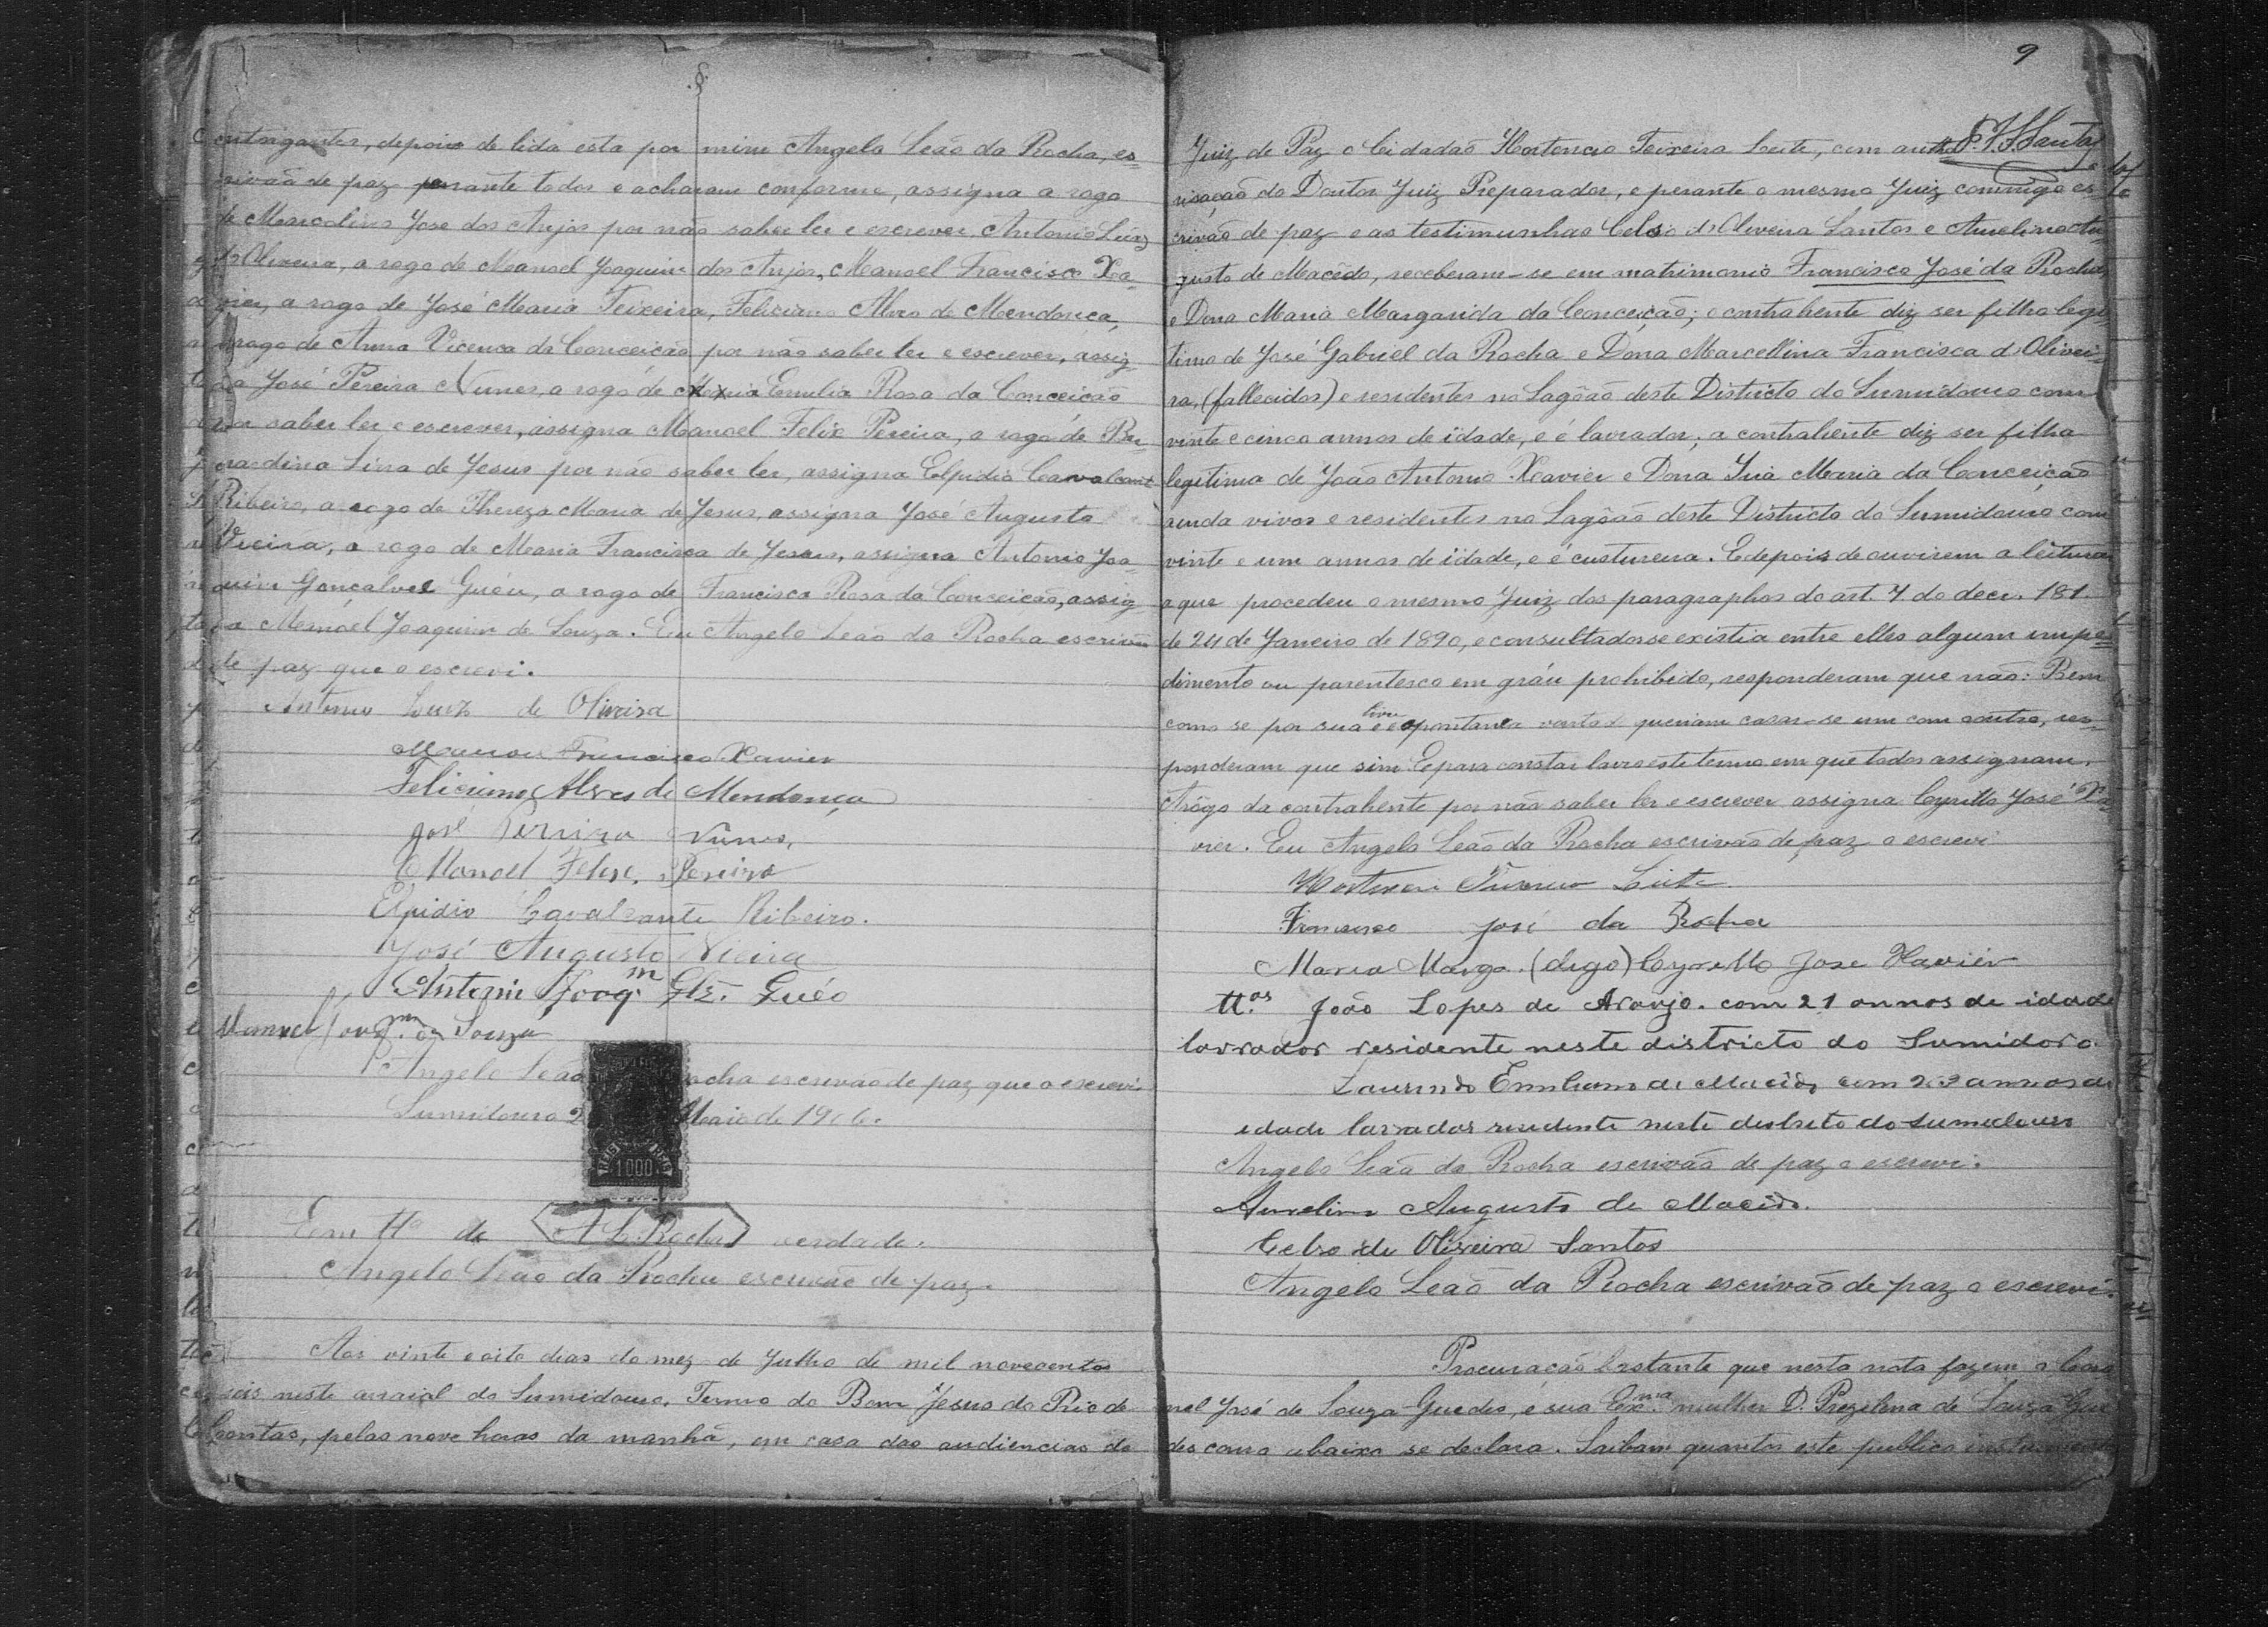 outorgantes, depois de lida esta por mim Angelo Leão da Rocha, es-
crivão de paz perante todos e acharam conforme, assigna a rogo
de Marcolino José dos Anjos por não saber ler e escrever Antonio Luiz
d'Oliveira, a rogo de Manoel Joaquim dos Anjos, Manoel Francisco Xa-
vier, a rogo de José Maria Teixeira, Feliciano Alves de Mendonça,
a rogo de Anna Vicencia da Conceição por não saber ler e escrever, assig-
na José Pereira Nunes, a rogo de Maria Emilia Rosa da Conceição
por saber ler e escrever, assigna Manoel Felix Pereira, a rogo de Ber-
nardina Lina de Jesus por não saber ler, assigna Elpidio Cavalcant
Ribeiro, a rogo de Thereza Maria de Jesus, assigna José Augusto
Vieira, a rogo de Maria Francisca de Jesus, assigna Antonio Joa-
quim Gonçalves Guéu, a rogo de Francisca Rosa da Conceição, assig-
na Manoel Joaquim de Souza. Eu Angelo Leão da Rocha escrivão
de paz que o escrevi.
Antonio Luiz de Oliveira
Manoel Francisco Xavier
Feliciano Alves de Mendonça
José Pereira Nunes,
Manoel Felix Pereira
Elpidio Cavalcante Ribeiro.
José Augusto Vieira
Antonio Joaqm Glz. Guéo
Manuel Joaqm de Souza
Angelo Leão Rocha escrivão de paz que o escrevi
Sumidouro 2 Maio de 1906.
1000
Em tto de A L Rocha verdade.
Angelo Leão da Rocha escrivão de paz.
Aos vinte e oito dias do mez de Julho de mil novecentos
e seis neste arraial do Sumidouro, Termo do Bom Jesus do Rio de
Contas, pelas nove horas da manhã, em casa das audiencias do
9
Juiz de Paz o Cidadão Hortencio Teixeira Leite, com auto-
risação do Doutor Juiz Preparador, e perante o mesmo Juiz commigo es-
crivão de paz e as testimunhas Celso d'Oliveira Santos e Aurelino Au-
gusto de Macêdo, receberam-se em matrimonio Francisco José da Rocha
e Dona Maria Margarida da Conceição; o contrahente diz ser filho legi-
timo de José Gabriel da Rocha e Dona Marcellina Francisca d'Olivei-
ra, (fallecidos) e residentes no Lagôão deste Districto do Sumidouro com
vinte e cinco annos de idade, e é lavrador; a contrahente diz ser filha
legitima de João Antonio Xavier e Dona Maria da Conceição
ainda vivos e residentes no Lagôão deste Districto do Sumidouro com
vinte e um annos de idade, e é custureira. E depois de ouvirem a leitura
a que procedeu o mesmo Juiz dos paragraphos do art. 7 do decr. 181
de 24 de Janeiro de 1890, e consultados se existia entre elles algum impe-
dimento ou parentesco em gráu prohibido, responderam que não: Bem
como se por sua livre e espontanea vontade queriam casar-se um com outro, res-
ponderam que sim. E para constar lavro este termo em que todos assignam.
A rôgo da contrahente por não saber ler e escrever assigna Cyrillo José Xa-
vier. Eu Angelo Leão da Rocha escrivão de paz o escrevi
Hortencio Teixeira Leite
Francisco José da Rocha
Maria Marga. (digo) Cyrillo Jose Xavier
tt.as João Lopes de Araujo. com 21 annos de idade
lavrador residente neste districto do Sumidoro.
Laurindo de Macêdo com 23 annos de
edade lavrador residente neste destreto do Sumedouro
Angelo Leão da Rocha escrivão de paz o escrevi.
Aurelino Augusto de Macêdo.
Celso de Oliveira Santos
Angelo Leão da Rocha escrivão de paz o escrevi.
Procuração bastante que nesta nota fazem o Coro
nel José de Souza Guedes, e sua Exma. mulher D. Prezilina de Souza Gue
des como abaixo se declara. Saibam quantos este publico instrumen